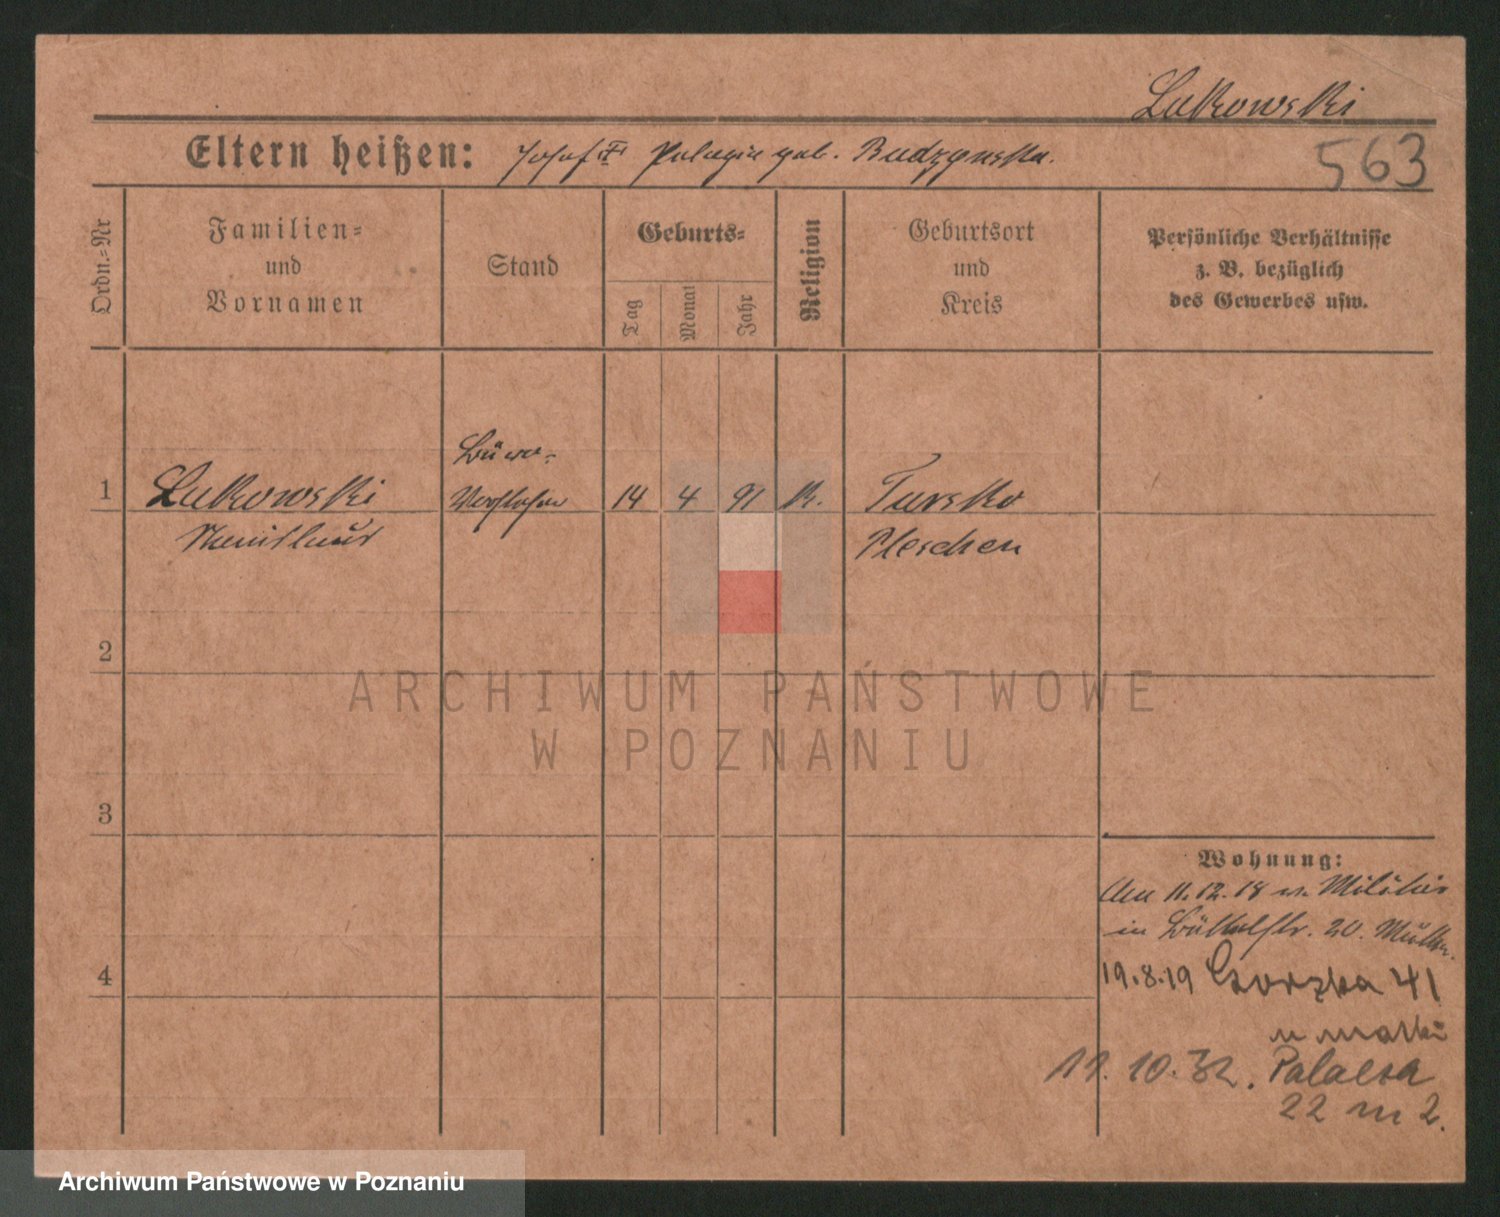 Lukowski
Eltern heißen: Josef II Pelagia geb. Budzynska.
563
Ordn.-Nr
Familien-
und
Vornamen
Stand
Geburts-
Tag
Monat
Jahr
Religion
Geburtsort
und
Kreis
Persönliche Verhältnisse
z. B. bezüglich
des Gewerbes usw.
1
Lukowski
Büro-
Vorsteher
14
4
91
k.
Tursko
Pleschen
2
3
4
Wohnung:
Am 11.12.18 v. Militär
in Büttelstr. 20. Mutter.
19.8.19 Gorzka 41
u matki
11.10.32. Palacza
22 m 2.
ARCHIWUM PAŃSTWOWE
W POZNANIU
Archiwum Państwowe w Poznaniu